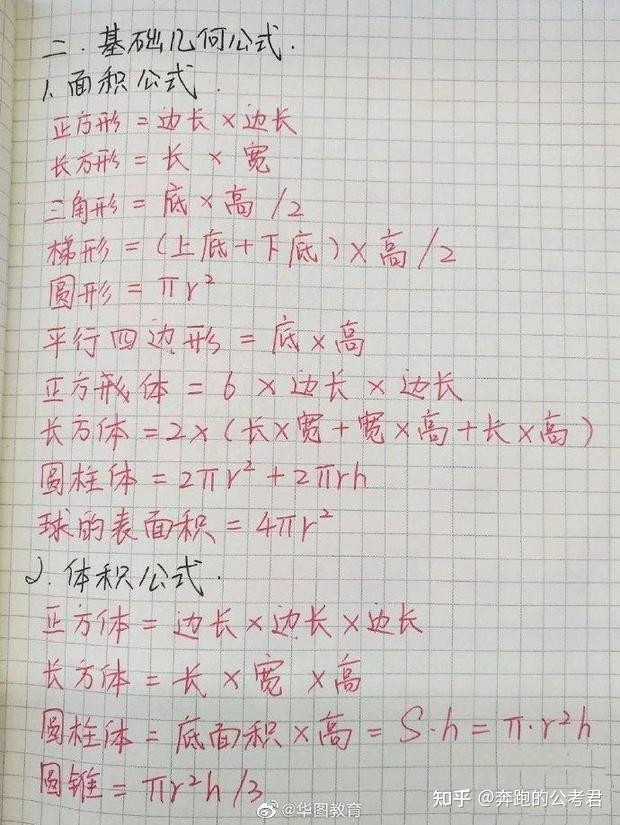 二.基础几何公式.
1.面积公式.
正方形=边长×边长
长方形=长×宽
三角形=底×高/2
梯形=(上底+下底)×高/2
圆形=πr²
平行四边形=底×高
正方形体=6×边长×边长
长方体=2×(长×宽+宽×高+长×高)
圆柱体=2πr²+2πrh
球的表面积=4πr²
2.体积公式.
正方体=边长×边长×边长
长方体=长×宽×高
圆柱体=底面积×高=S·h=π·r²h
圆锥=πr²h/3
@华图教育
知乎 @奔跑的公考君